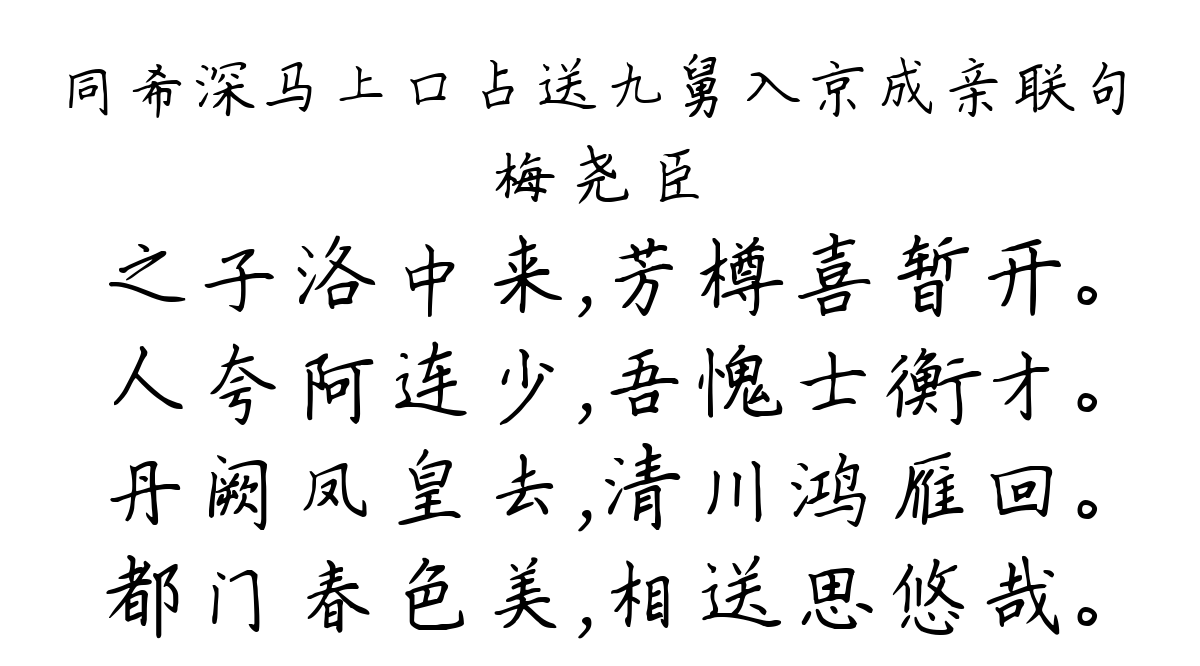 同希深马上口占送九舅入京成亲联句
梅尧臣
之子洛中来,芳樽喜暂开。
人夸阿连少,吾愧士衡才。
丹阙凤皇去,清川鸿雁回。
都门春色美,相送思悠哉。